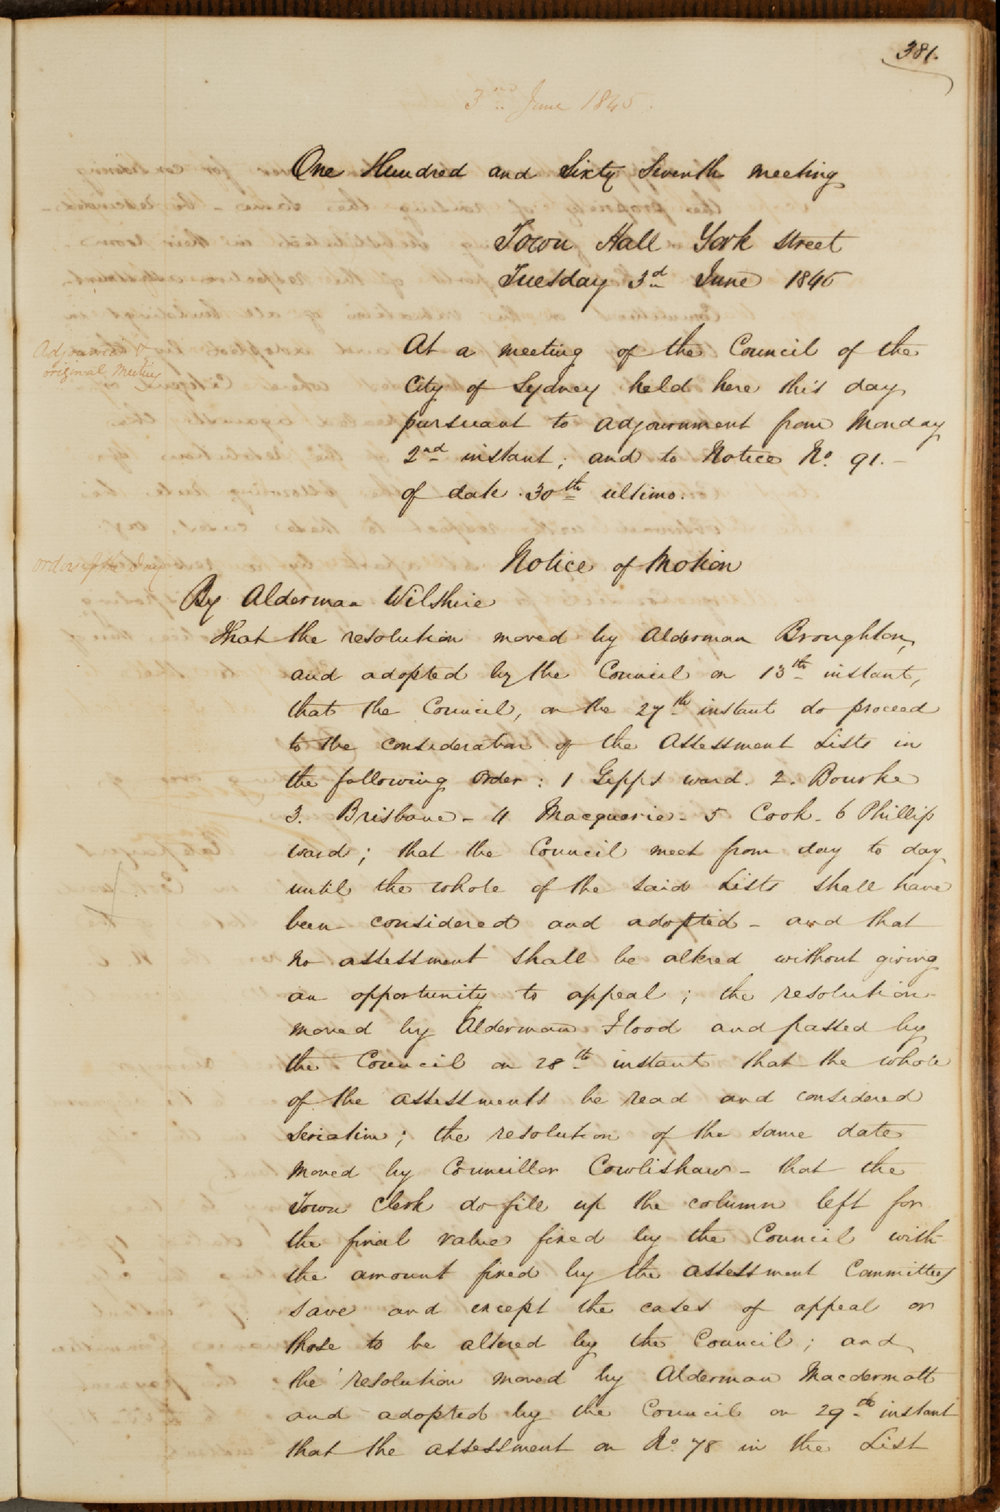 381.
3rd June 1845.
One Hundred and Sixty Seventh meeting
Town Hall York Street
Tuesday 3d June 1845
Adjourned &
original Meeting
At a meeting of the Council of the
City of Sydney held here this day
pursuant to adjournment from Monday
2nd instant; and to Notice No. 91.-
of date 30th ultimo.
order of the Day
Notice of Motion
By Alderman Wilshire
That the resolution moved by Alderman Broughton,
and adopted by the Council on 13th instant,
that the Council, on the 27th instant do proceed
to the consideration of the Assessment Lists in
the following order: 1 Gipps ward. 2. Bourke
3. Brisbane - 4 Macquarie - 5 Cook - 6 Phillip
ward; that the Council meet from day to day
until the whole of the said Lists shall have
been considered and adopted - and that
no assessment shall be altered without giving
an opportunity to appeal; the resolution
moved by Alderman Flood and passed by
the Council on 28th instant that the whole
of the assessments be read and considered
seriatim; the resolution of the same date
moved by Councillor Cowlishaw - that the
Town Clerk do fill up the column left for
the final value fixed by the Council with
the amount fixed by the assessment Committees
save and except the cases of appeal or
those to be altered by the Council; and
the resolution moved by Alderman Macdermott
and adopted by the Council on 29th instant
that the assessment on No. 78 in the List